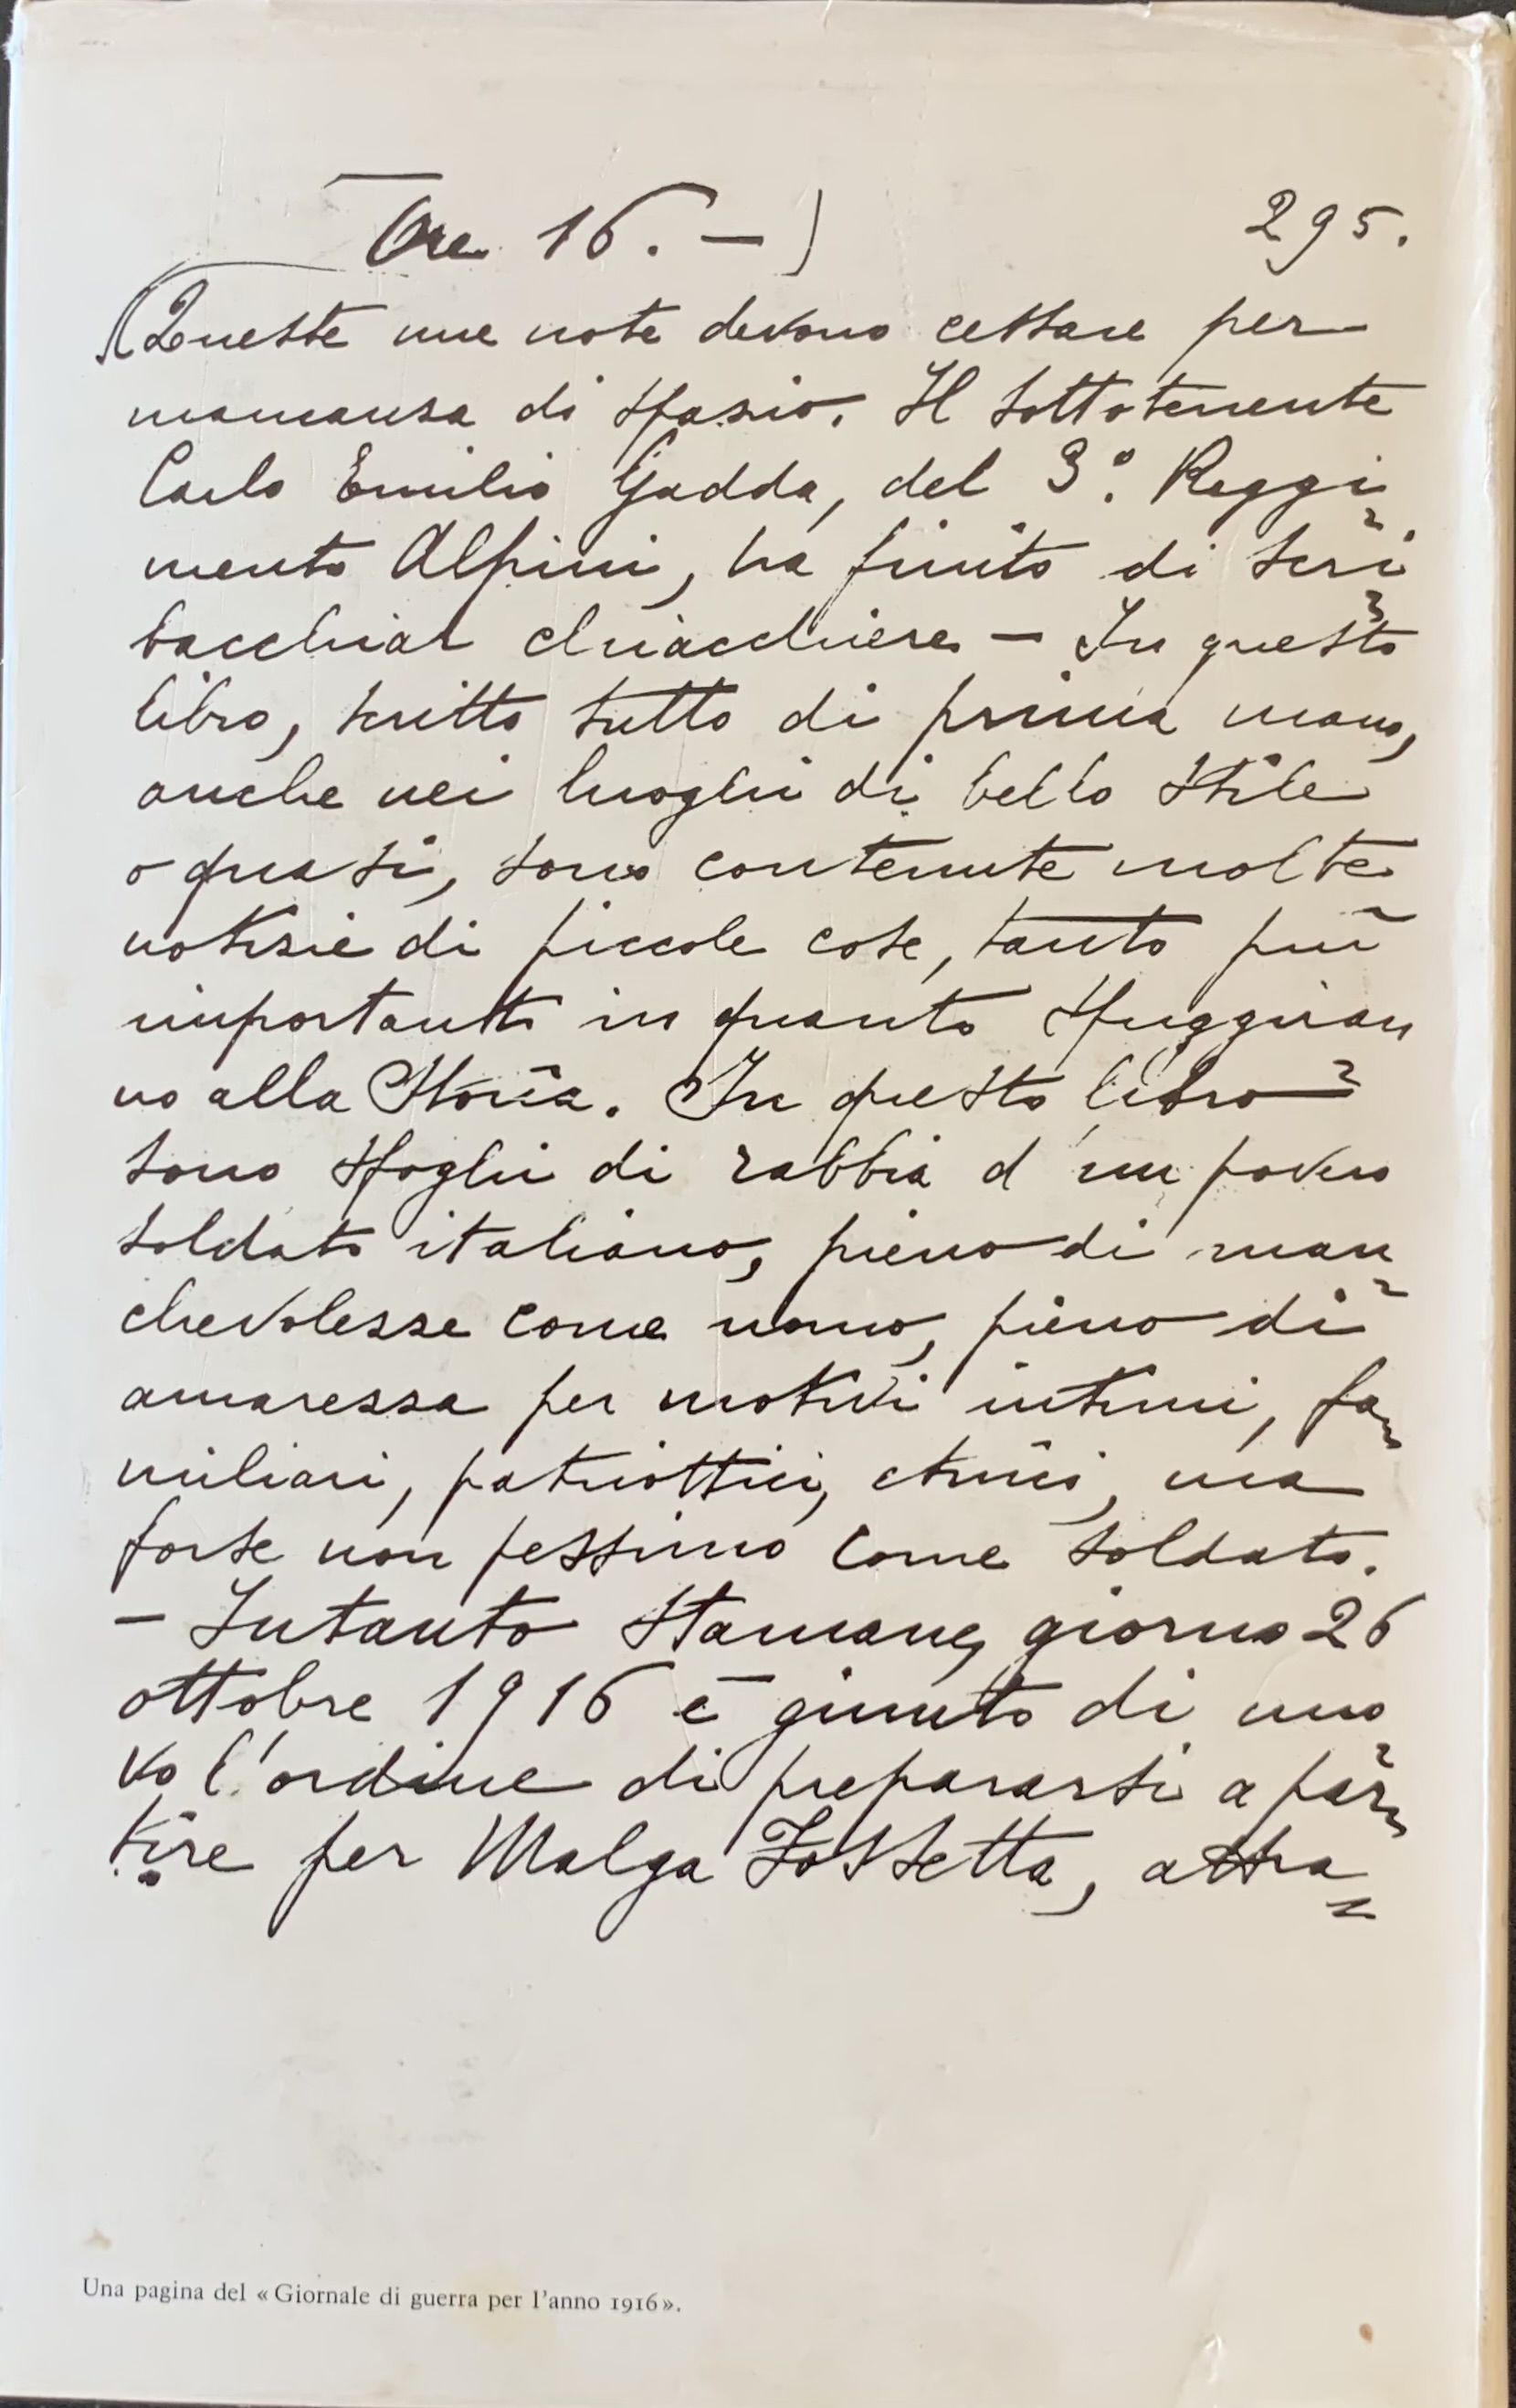 Ore 16. —)
295.
(Queste mie note devono cessare per
mancanza di spazio. Il sottotenente
Carlo Emilio Gadda, del 3.° Reggi=
mento Alpini, ha finito di scri=
bacchiar chiacchiere. — In questo
libro, scritto tutto di prima mano,
anche nei luoghi di bello stile
o quasi, sono contenute molte
notizie di piccole cose, tanto più
importanti in quanto sfuggiran
no alla Storia. In questo libro =
sono sfoghi di rabbia d'un povero
soldato italiano, pieno di man
chevolezze come uomo, pieno di =
amarezza per motivi intimi, fa=
miliari, patriottici, etnici, ma
forse non pessimo come soldato.
— Intanto stamane, giorno 26
ottobre 1916 è giunto di nuo
vo l'ordine di prepararsi a par=
tire per Malga Fossetta, attra=
Una pagina del «Giornale di guerra per l'anno 1916».